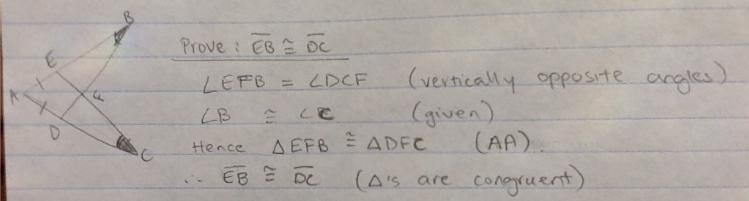 B
E
A
F
D
C
Prove: E̅B̅ ≅ D̅C̅
∠EFB = ∠DCF (vertically opposite angles)
∠B ≅ ∠C (given)
Hence △EFB ≅ △DFC (AA).
∴ E̅B̅ ≅ D̅C̅ (△'s are congruent)